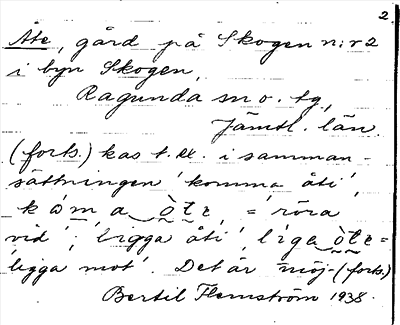 2.
Åte, gård på Skogen n:r 2
i byn Skogen,
Ragunda sn o. tg,
Jämtl. län.
(forts.) kas t. ex. i samman-
sättningen 'komma åti',
kòma òte, = 'röra
vid'; 'ligga åti', liga òte =
'ligga mot'. Det är möj- (forts.)
Bertil Flemström 1938.